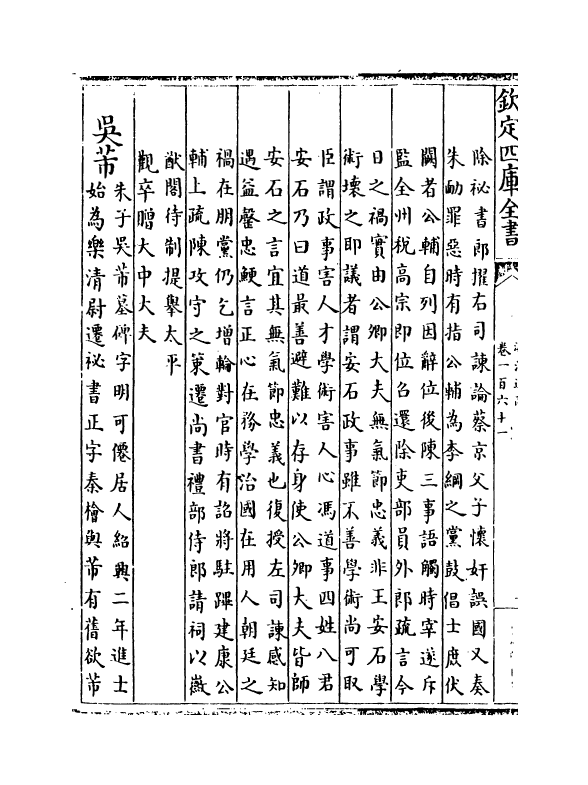 欽定四庫全書
卷一百六十一
除祕書郎擢右司諫論蔡京父子懷奸誤國又奏
朱勔罪惡時有指公輔為李綱之黨鼓倡士庶伏
闕者公輔自列因辭位後陳三事語觸時宰遂斥
監全州稅高宗即位召還除吏部員外郎疏言今
日之禍實由公卿大夫無氣節忠義非王安石學
術壞之耶議者謂安石政事雖不善學術尚可取
臣謂政事害人才學術害人心馮道事四姓八君
安石乃曰道最善避難以存身使公卿大夫皆師
安石之言宜其無氣節忠義也復授左司諫感知
遇益罄忠鯁言正心在務學治國在用人朝廷之
禍在朋黨仍乞增輪對官時有詔將駐蹕建康公
輔上疏陳攻守之策遷尚書禮部侍郎請祠以徽
猷閣待制提舉太平
觀卒贈大中大夫
吳芾
朱子吳芾墓碑字明可僊居人紹興二年進士
始為樂清尉遷祕書正字秦檜與芾有舊欲芾